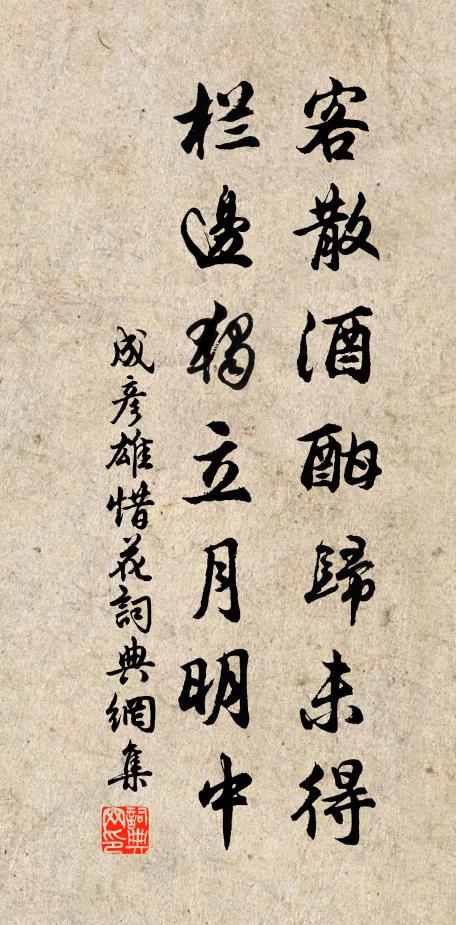 客散酒酣歸未得
栏邊獨立月明中
成彦雄惜花詞典網集
詞典网印